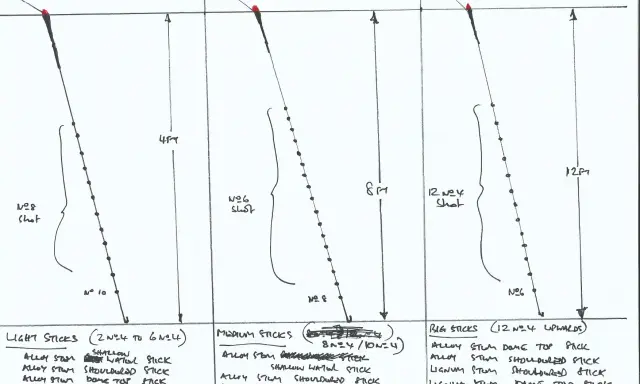 4FT
Nº8
Shot
Nº 10
LIGHT STICKS (2Nº4 TO 6Nº4)
SHALLOW
ALLOY STEM WATER STICK
ALLOY STEM SHOULDERED STICK
ALLOY STEM DOME TOP STICK
8FT
Nº6
Shot
Nº8
MEDIUM STICKS (
8Nº4/10Nº4)
ALLOY STEM STICK
SHALLOW WATER STICK
ALLOY STEM SHOULDERED STICK
12FT
12 Nº4
Shot
Nº6
BIG STICKS (12Nº4 UPWARDS)
ALLOY STEM DOME TOP STICK
ALLOY STEM SHOULDERED STICK
LIGNUM STEM SHOULDERED STICK
LIGNUM STEM DOME TOP STICK